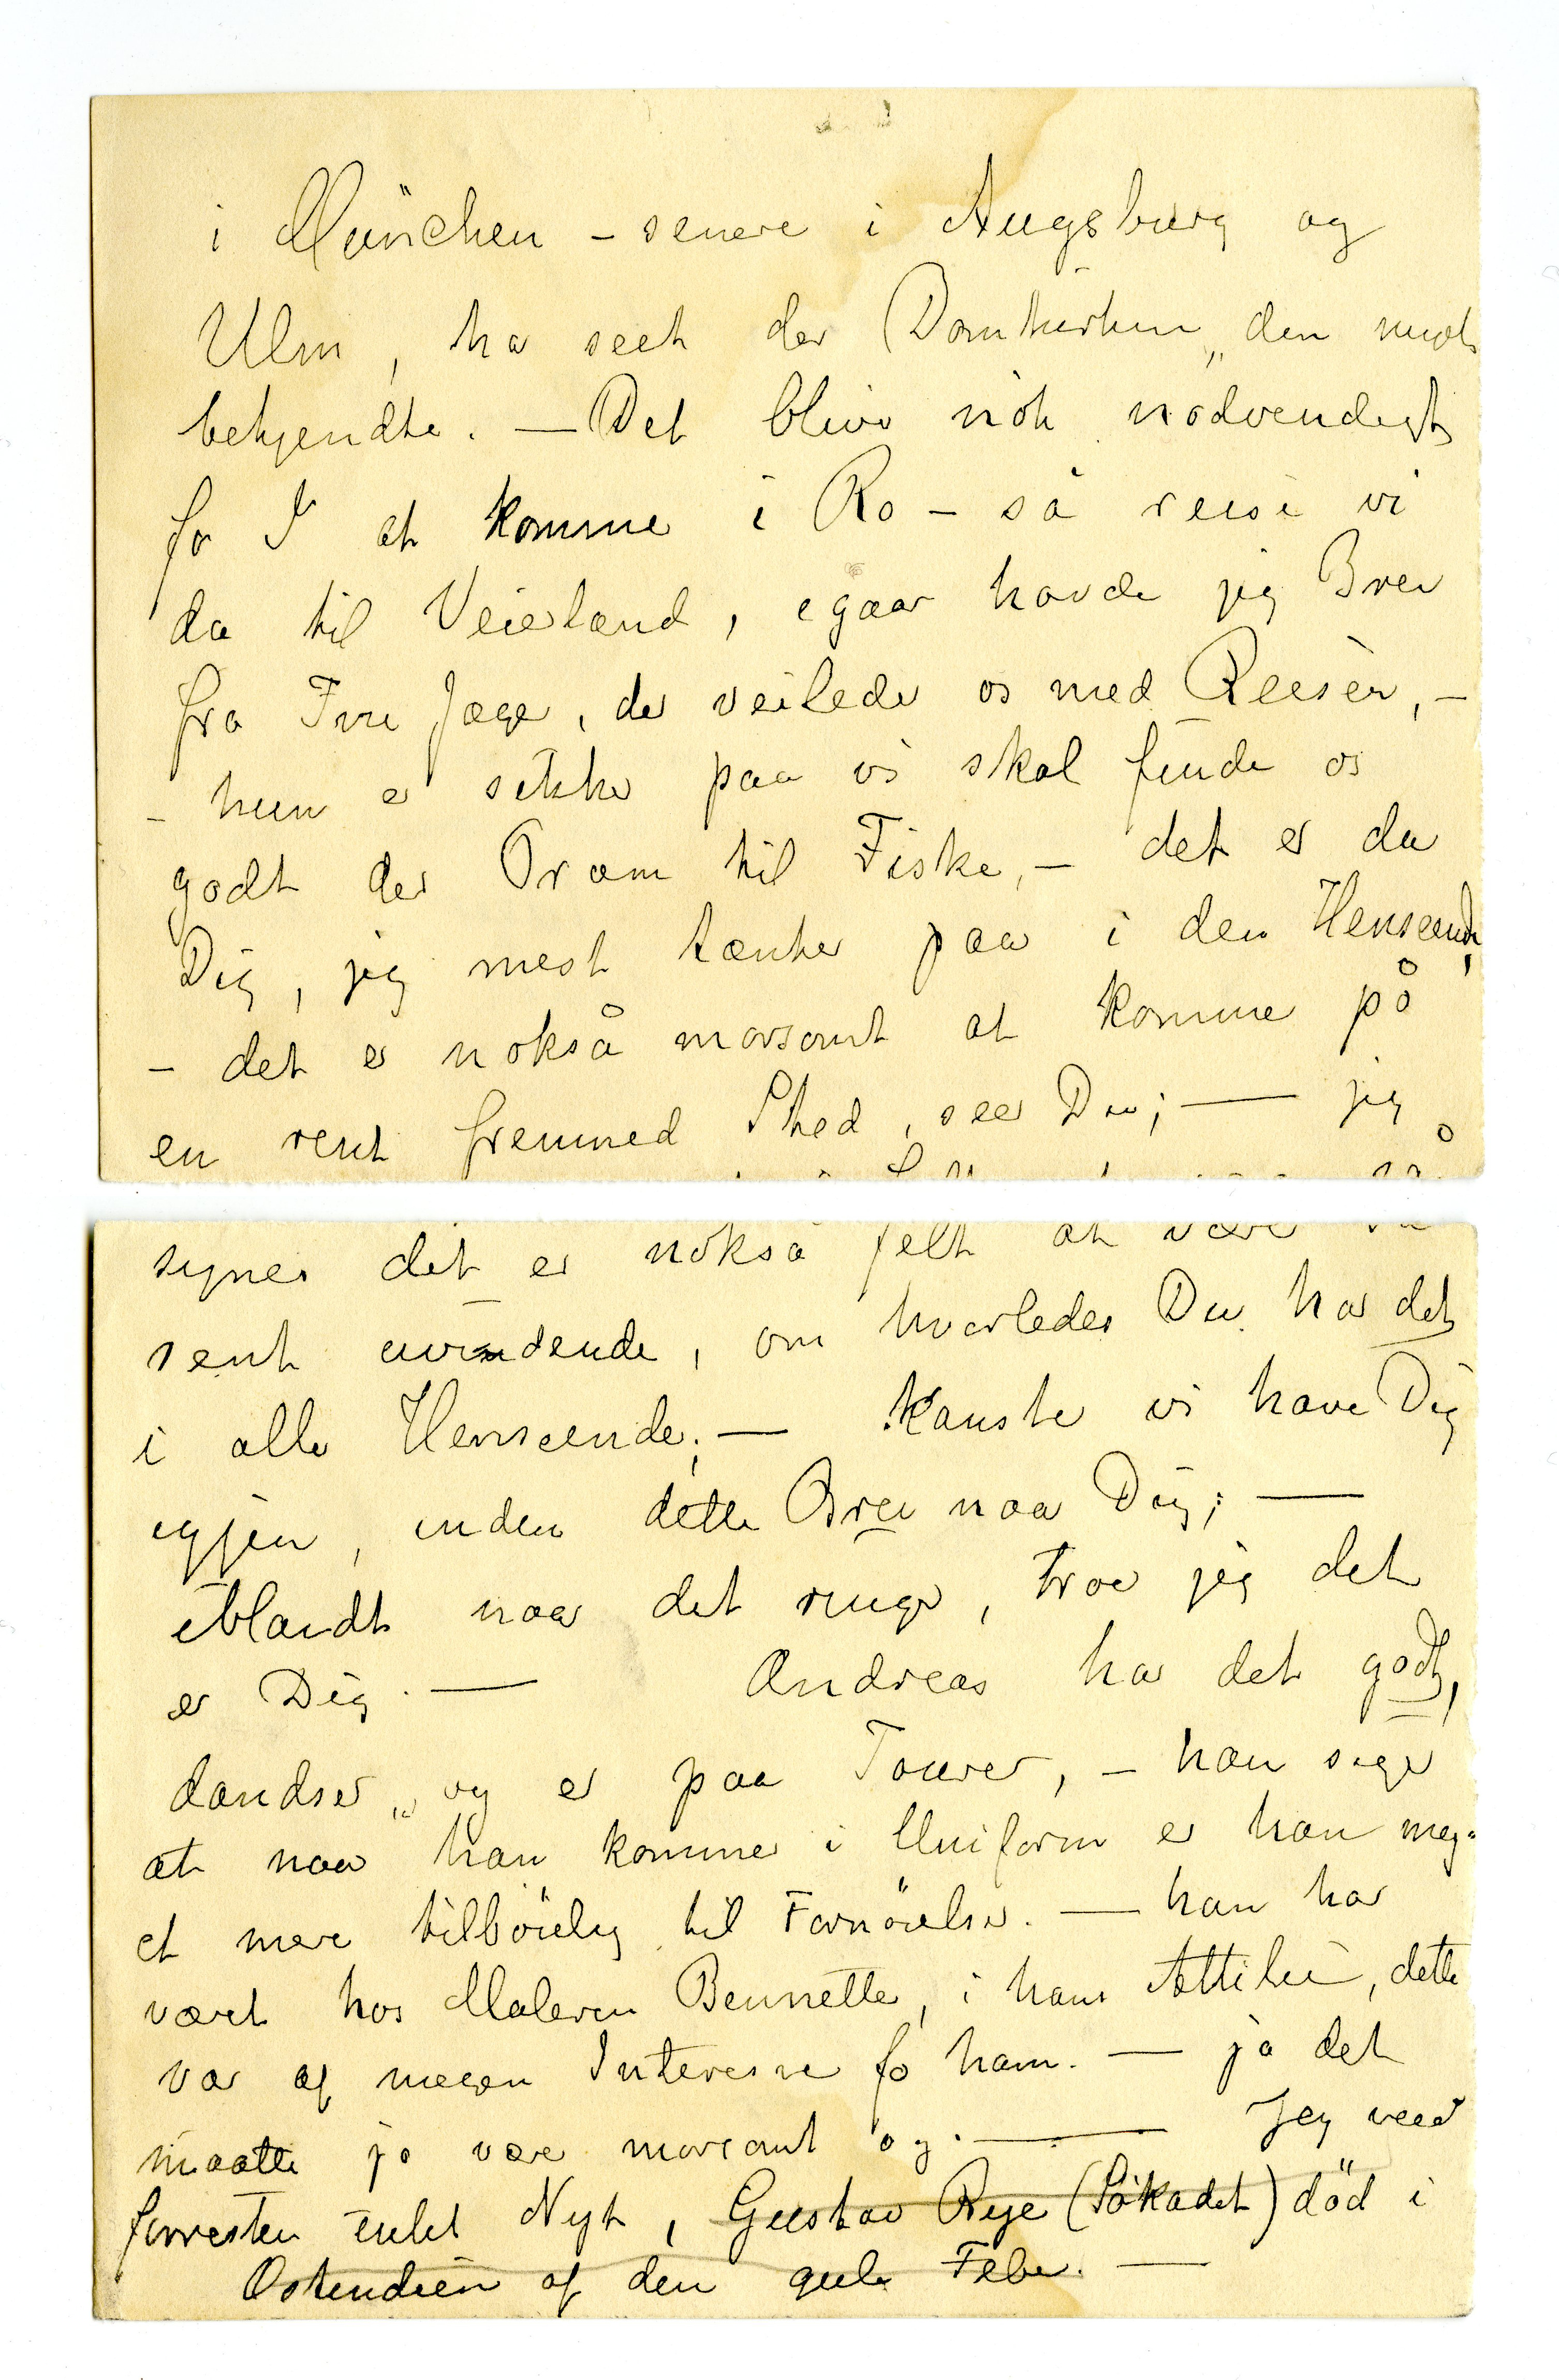 i München – senere i Augsburg og
Ulm, har seet der Domkirken „den
bekjendte. — Det bliver nok nødvendigt
for I at komme i Ro – så reiser vi
da til Veierland, igaar havde jeg Brev
fra Fru Jæger, der veileder os med Reisen, –
– hun er sikker paa vi skal finde os
godt der Pram til Fiske, – det er da
Dig, jeg mest tænker paa i den Henseende,
– det er nokså morsomt at komme på
en rent fremmed Sted, seer Du; — jeg
synes det er nokså felt at være så
rent uvidende, om hvorledes Du har det
i alle Henseender; — kanske vi have Dig
igjen, inden dette Brev naar Dig; —
iblandt naar det ringer, troer jeg det
er Dig. — Andreas har det godt,
dandser „ og er paa Tourer, – han siger
at naar han kommer i Uniform er han meg-
et mere tilbøielig til Fornøielser. — han har
været hos Maleren Bennetter, i hans Attelier, dette
var af megen Interesse for ham. — ja det
maatte jo være morsomt og. — Jeg veed
forresten intet Nyt, Gustav Rye (Søkadet) død i
Ostendien af den gule Feber. —